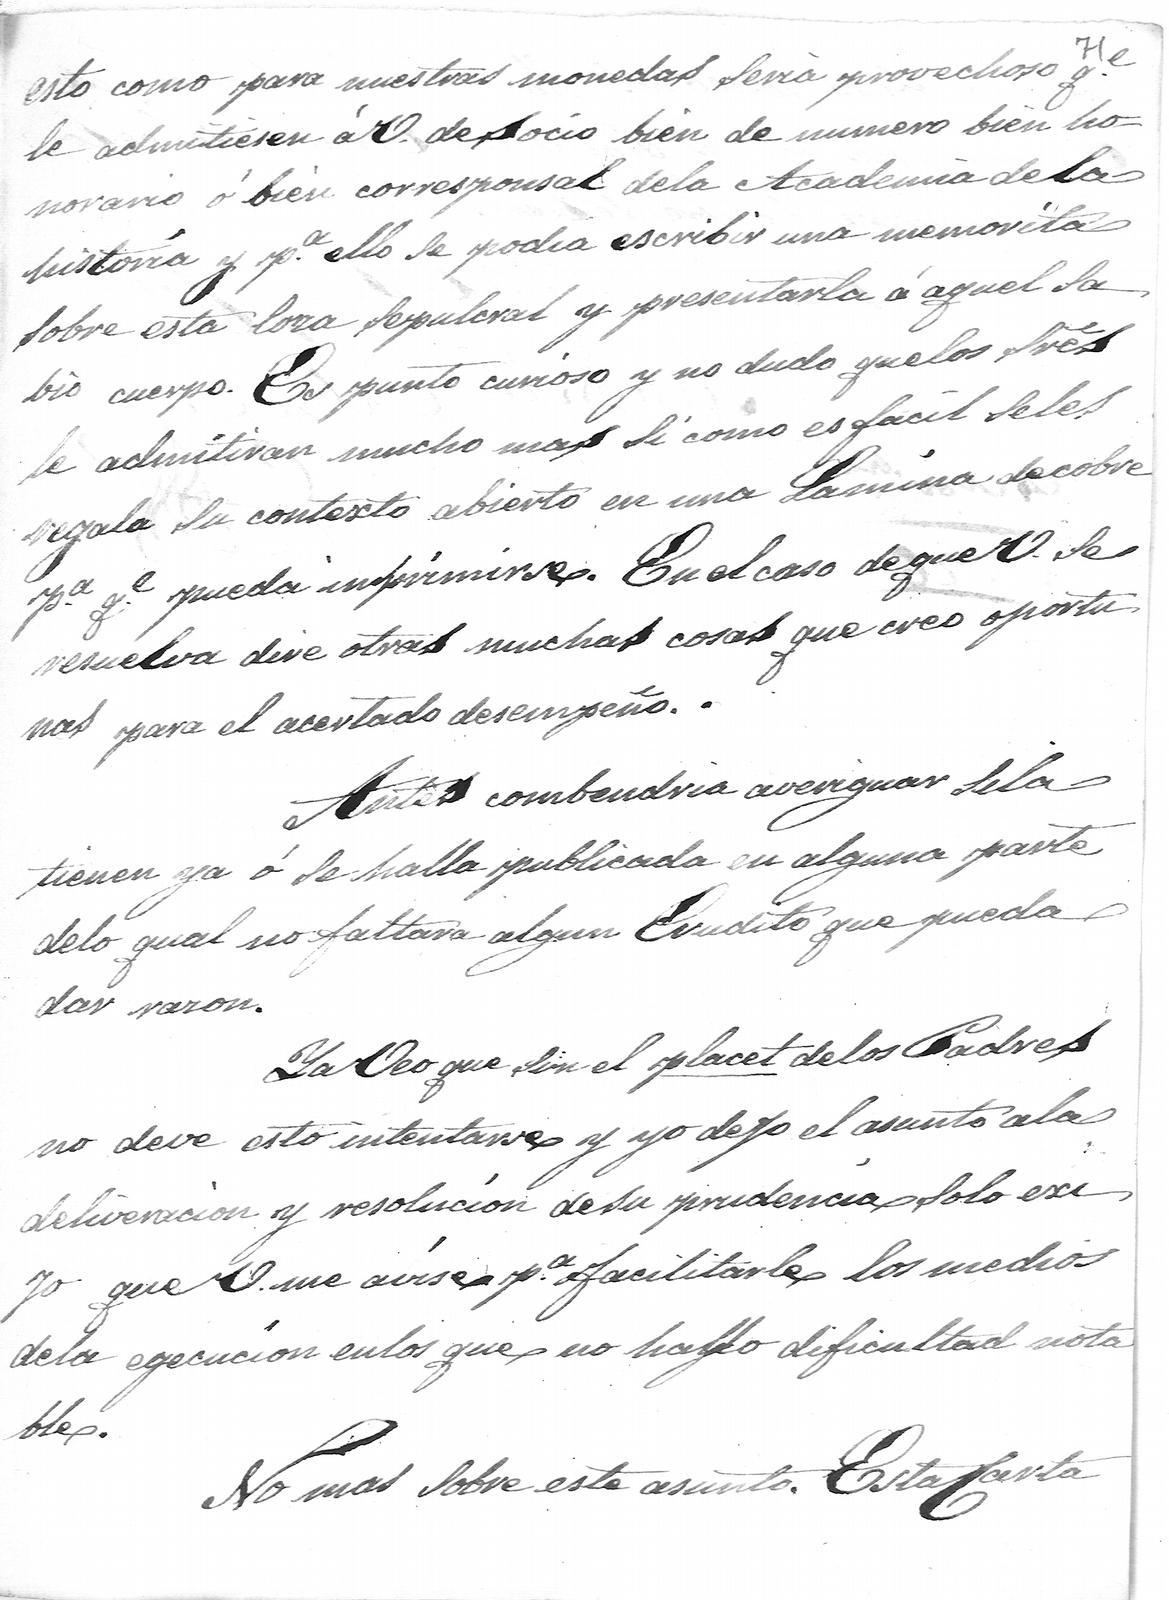 71
esto como para nuestras monedas seria provechoso q.e
le admitiesen á V. de socio bien de numero bien ho-
norario ó bien corresponsal dela Academia de la
historia y p.a ello se podia escribir una memorita
sobre esta loza sepulcral y presentarla á aquel sa
bio cuerpo. Es punto curioso y no dudo que los Sres
le admitiran mucho mas si como es facil se les
regala su contexto abierto en una Lamina de cobre
p.a q.e pueda imprimirse. En el caso de que V. se
resuelva dire otras muchas cosas que creo oportu
nas para el acertado desempeño.
Antes combendria averiguar si la
tienen ya ó se halla publicada en alguna parte
delo qual no faltara algun Erudito que pueda
dar razon.
Ya Veo que sin el placet de los Padres
no deve esto intentarse y yo dejo el asunto ala
deliveracion y resolucion de su prudencia solo exi
jo que V. me avise p.a facilitarle los medios
dela egecucion enlos que no hallo dificultad nota
ble.
No mas sobre este asunto. Esta Carta